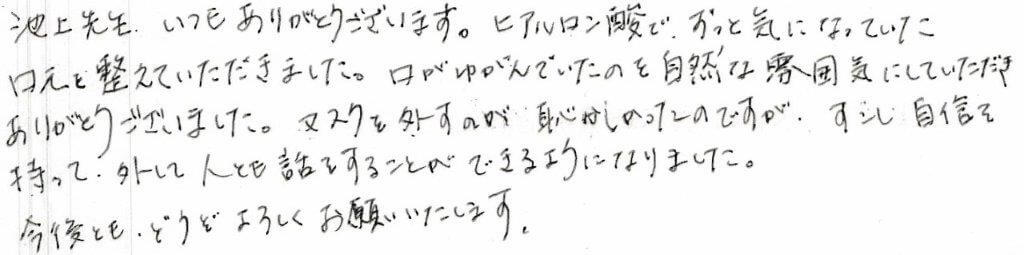 池上先生、いつもありがとうございます。ヒアルロン酸で、ずっと気になっていた
口元を整えていただきました。口がゆがんでいたのを自然な雰囲気にしていただき
ありがとうございました。マスクを外すのが恥ずかしかったのですが、すこし自信を
持って、外して人とも話をすることができるようになりました。
今後とも、どうぞよろしくお願いいたします。